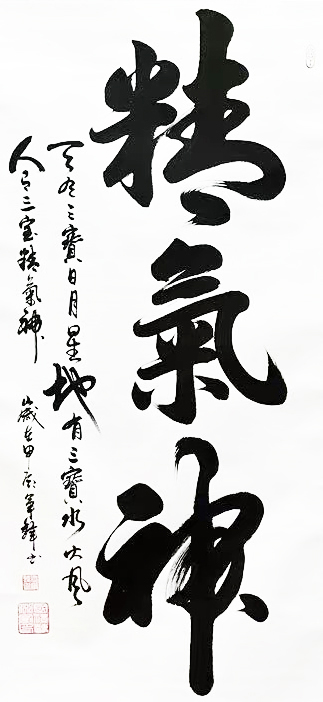 精氣神
天有三寶日月星地有三寶水火風
人有三宝精氣神
歲在甲辰年